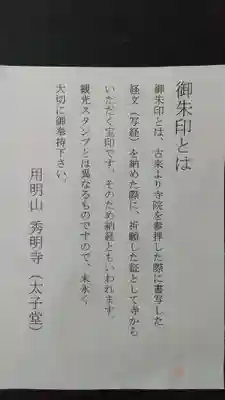 御朱印とは
御朱印とは、古来より寺院を参拝した際に書写した
経文（写経）を納めた際に、祈願した証として寺から
いただく宝印です。そのため納経ともいわれます。
観光スタンプとは異なるものですので、末永く
大切に御奉持下さい。
用明山 秀明寺（太子堂）